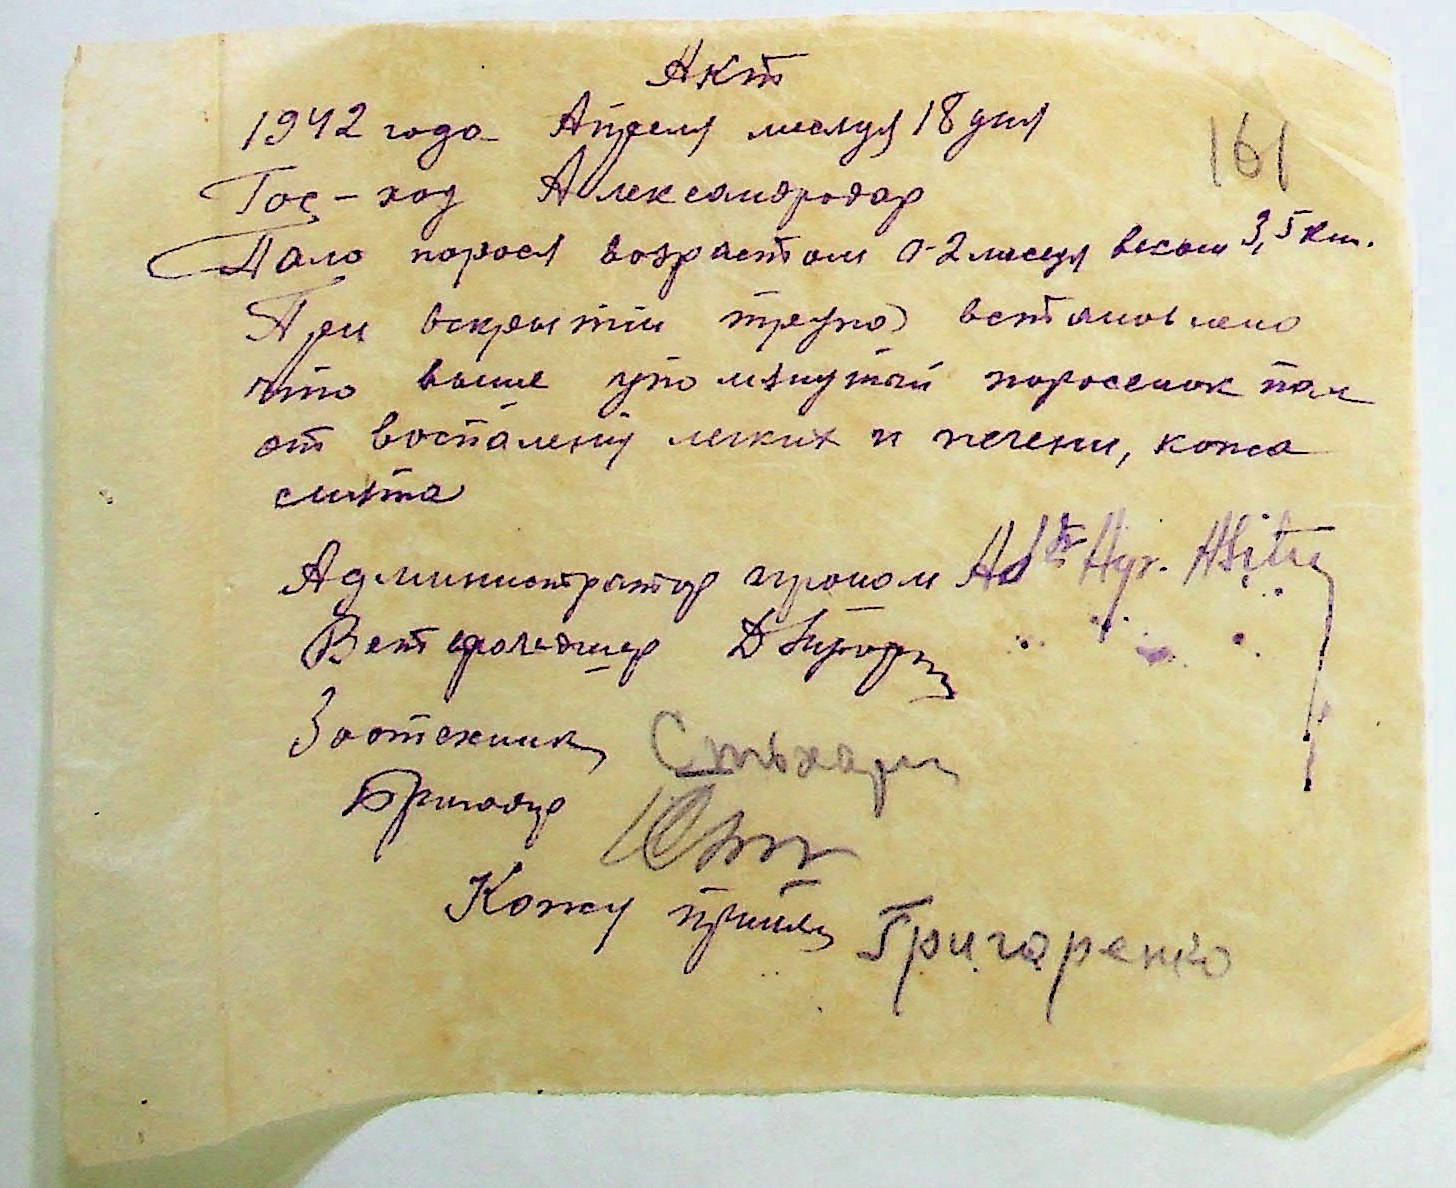 Акт
1942 года Апреля месяця 18 дня
161
Гос-ход Александродар
Пало порося возрастом 0-2 месяця весом 3,5 кгм.
При вскрытии трупа встановлено
что выше упомянутый поросенок пал
от воспаления легких и печени, кожа
снята
Администратор агроном
Ветфельдшер
Зоотехник
Бригадир
Кожу принял Григаренко